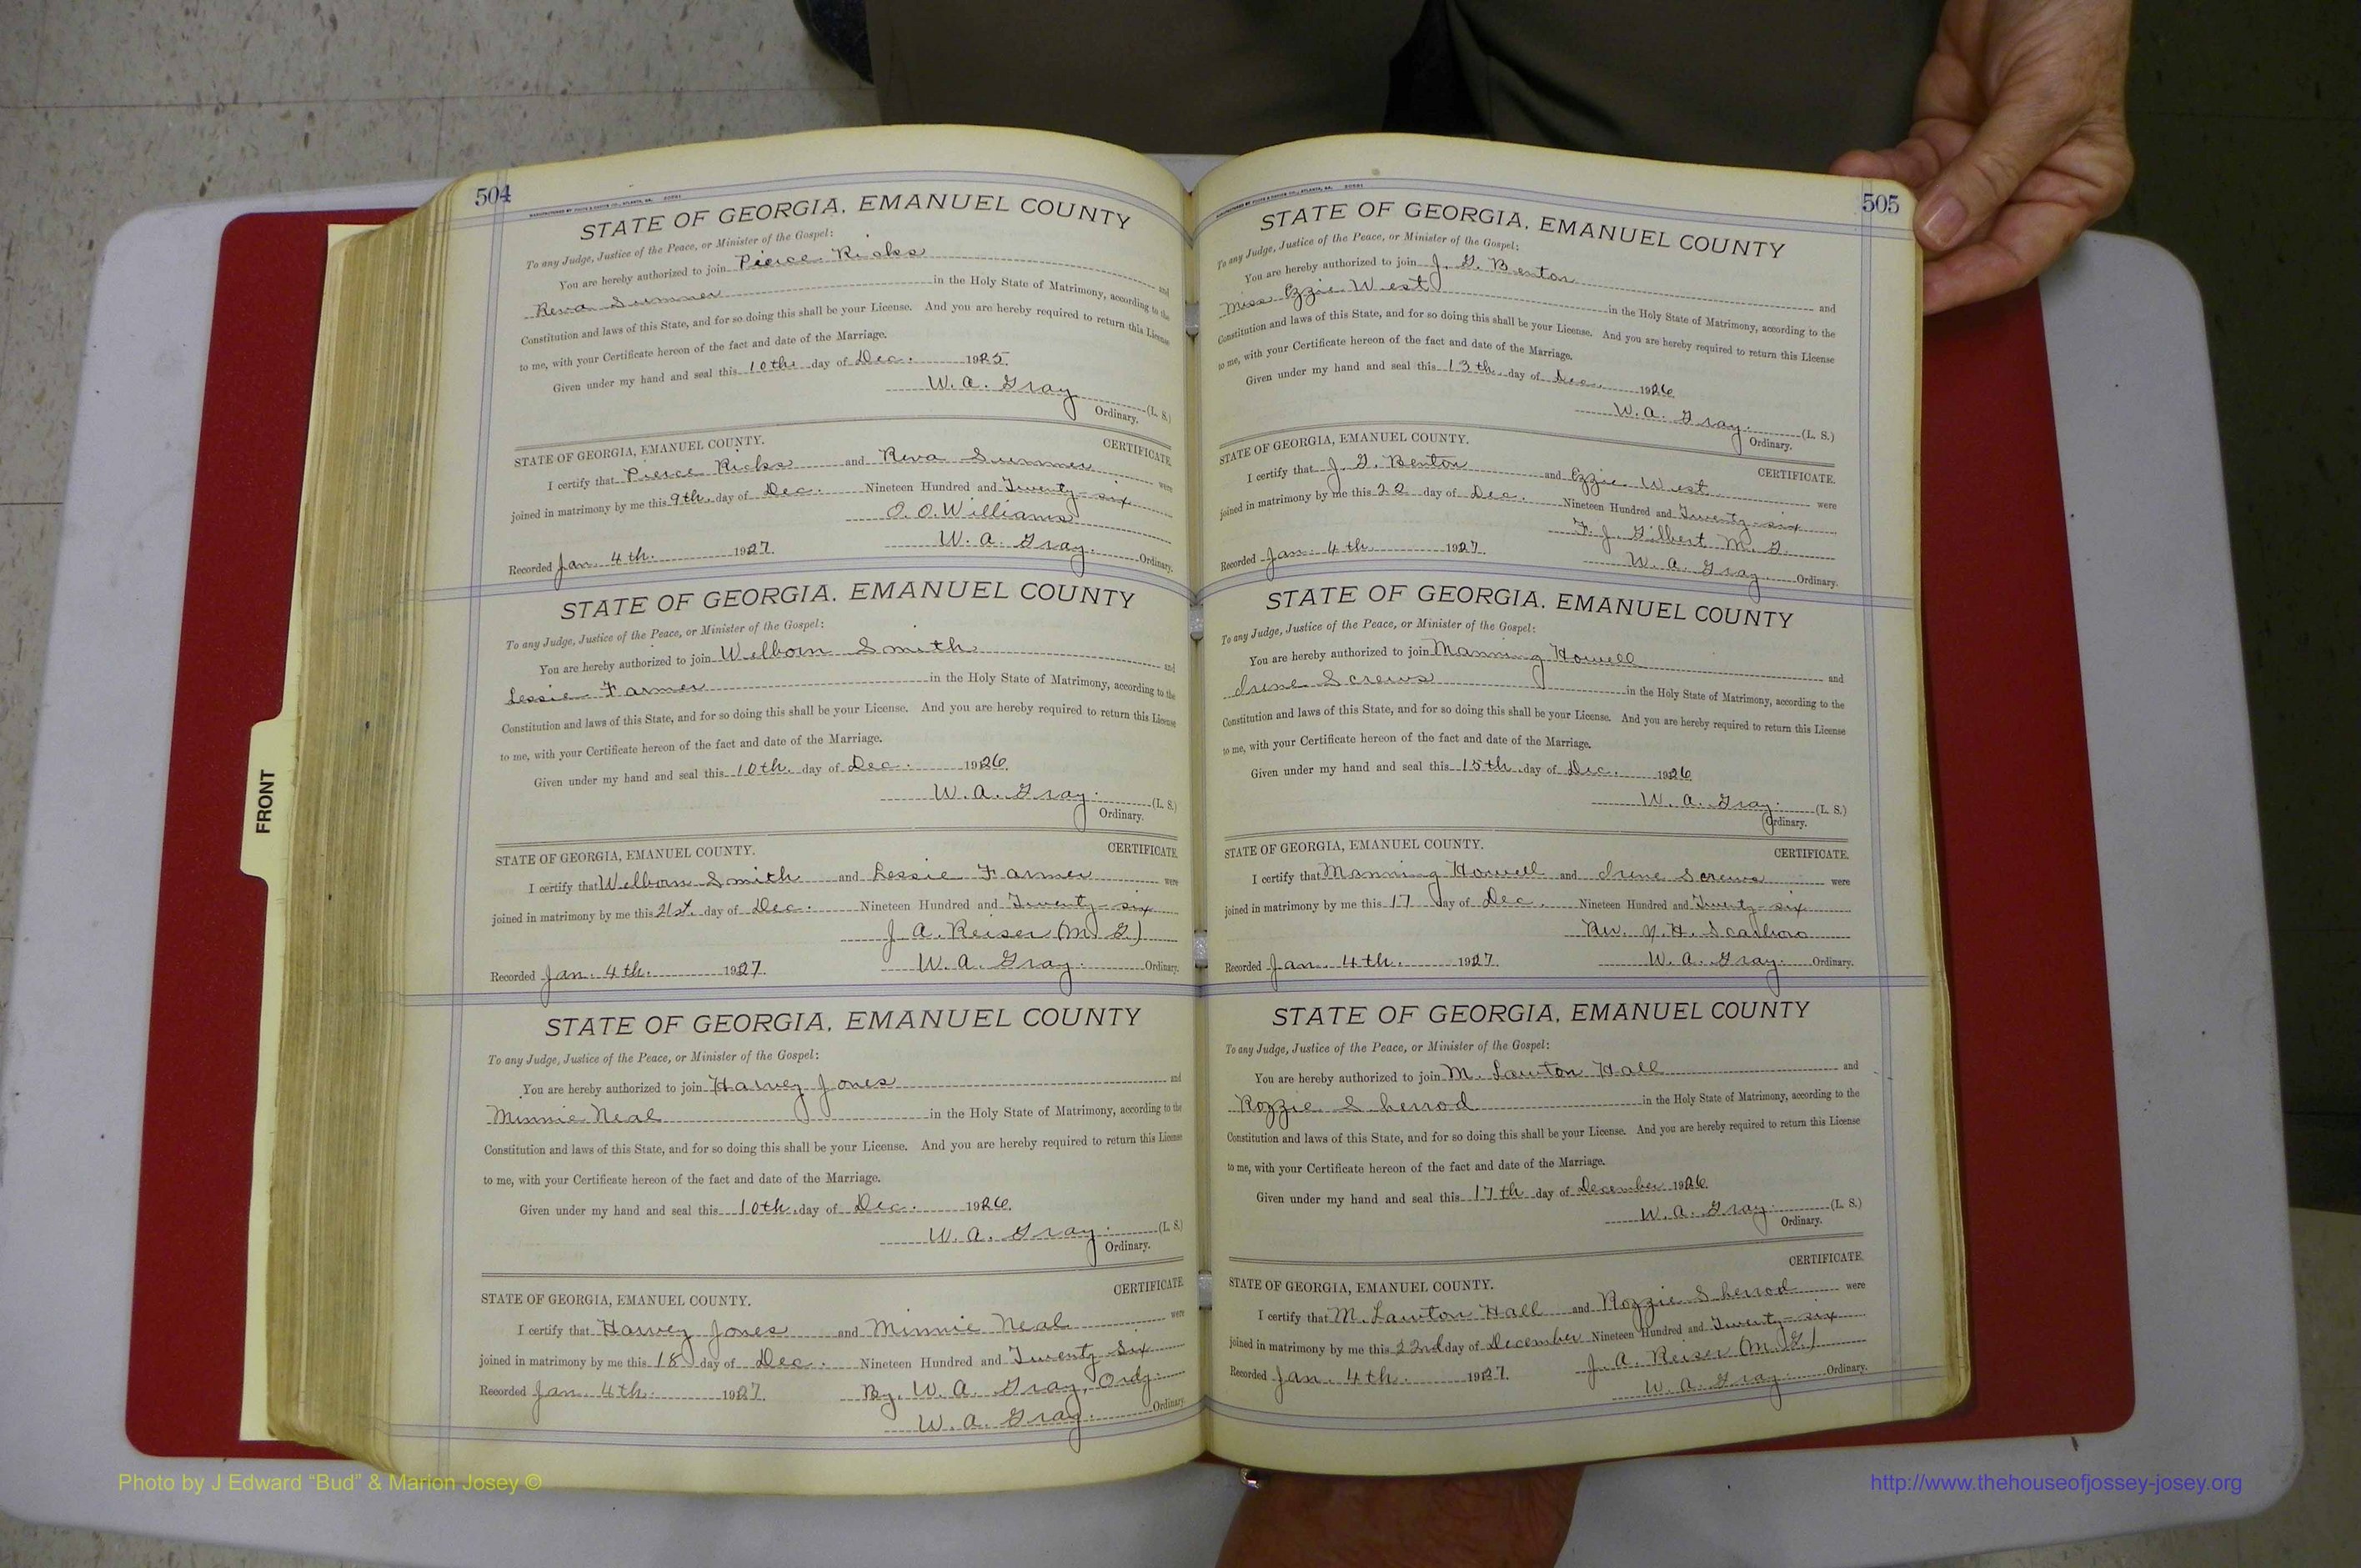 504
STATE OF GEORGIA, EMANUEL COUNTY
To any Judge, Justice of the Peace, or Minister of the Gospel:
You are hereby authorized to join Pierce Ricks and
Reva Sumner in the Holy State of Matrimony, according to the
Constitution and laws of this State, and for so doing this shall be your License. And you are hereby required to return this License
to me, with your Certificate hereon of the fact and date of the Marriage.
Given under my hand and seal this 10th. day of Dec. 1925.
W. A. Gray (L. S.)
Ordinary.
STATE OF GEORGIA, EMANUEL COUNTY. CERTIFICATE
I certify that Pierce Ricks and Reva Sumner were
joined in matrimony by me this 9th. day of Dec. Nineteen Hundred and Twenty-six
O. O. Williams
Recorded Jan. 4th. 1927. W. A. Gray. Ordinary.
STATE OF GEORGIA, EMANUEL COUNTY
To any Judge, Justice of the Peace, or Minister of the Gospel:
You are hereby authorized to join Welborn Smith and
Lessie Farmer in the Holy State of Matrimony, according to the
Constitution and laws of this State, and for so doing this shall be your License. And you are hereby required to return this License
to me, with your Certificate hereon of the fact and date of the Marriage.
Given under my hand and seal this 10th. day of Dec. 1926.
W. A. Gray. (L. S.)
Ordinary.
STATE OF GEORGIA, EMANUEL COUNTY. CERTIFICATE
I certify that Welborn Smith and Lessie Farmer were
joined in matrimony by me this 21st. day of Dec. Nineteen Hundred and Twenty-six
J. A. Reiser (M. G.)
Recorded Jan. 4th. 1927. W. A. Gray. Ordinary.
STATE OF GEORGIA, EMANUEL COUNTY
To any Judge, Justice of the Peace, or Minister of the Gospel:
You are hereby authorized to join Harvey Jones and
Minnie Neal in the Holy State of Matrimony, according to the
Constitution and laws of this State, and for so doing this shall be your License. And you are hereby required to return this License
to me, with your Certificate hereon of the fact and date of the Marriage.
Given under my hand and seal this 10th. day of Dec. 1926.
W. A. Gray. (L. S.)
Ordinary.
CERTIFICATE
STATE OF GEORGIA, EMANUEL COUNTY.
I certify that Harvey Jones and Minnie Neal were
joined in matrimony by me this 18 day of Dec. Nineteen Hundred and Twenty Six
Recorded Jan. 4th. 1927. By, W. A. Gray, Ordy.
W. A. Gray. Ordinary.
505
STATE OF GEORGIA, EMANUEL COUNTY
To any Judge, Justice of the Peace, or Minister of the Gospel:
You are hereby authorized to join J. G. Benton and
Miss Ozzie West in the Holy State of Matrimony, according to the
Constitution and laws of this State, and for so doing this shall be your License. And you are hereby required to return this License
to me, with your Certificate hereon of the fact and date of the Marriage.
Given under my hand and seal this 13th. day of Dec. 1926.
W. A. Gray. (L. S.)
Ordinary.
STATE OF GEORGIA, EMANUEL COUNTY. CERTIFICATE.
I certify that J. G. Benton and Ozzie West were
joined in matrimony by me this 20 day of Dec. Nineteen Hundred and Twenty-six
F. J. Gilbert M. G.
Recorded Jan. 4th. 1927. W. A. Gray. Ordinary.
STATE OF GEORGIA, EMANUEL COUNTY
To any Judge, Justice of the Peace, or Minister of the Gospel:
You are hereby authorized to join Manning Howell and
Irene Screws in the Holy State of Matrimony, according to the
Constitution and laws of this State, and for so doing this shall be your License. And you are hereby required to return this License
to me, with your Certificate hereon of the fact and date of the Marriage.
Given under my hand and seal this 15th. day of Dec. 1926
W. A. Gray. (L. S.)
Ordinary.
STATE OF GEORGIA, EMANUEL COUNTY. CERTIFICATE.
I certify that Manning Howell and Irene Screws were
joined in matrimony by me this 17 day of Dec. Nineteen Hundred and Twenty-six
Rev. H. Scarboro
Recorded Jan. 4th. 1927. W. A. Gray. Ordinary.
STATE OF GEORGIA, EMANUEL COUNTY
To any Judge, Justice of the Peace, or Minister of the Gospel:
You are hereby authorized to join M. Lawton Hall and
Rozzie Sherrod in the Holy State of Matrimony, according to the
Constitution and laws of this State, and for so doing this shall be your License. And you are hereby required to return this License
to me, with your Certificate hereon of the fact and date of the Marriage.
Given under my hand and seal this 17th day of December 1926.
W. A. Gray. (L. S.)
Ordinary.
CERTIFICATE
STATE OF GEORGIA, EMANUEL COUNTY.
I certify that M. Lawton Hall and Rozzie Sherrod were
joined in matrimony by me this 22nd day of December Nineteen Hundred and Twenty-six
J. A. Reiser (M. G.)
Recorded Jan. 4th. 1927. W. A. Gray. Ordinary.
FRONT
Photo by J Edward “Bud” & Marion Josey ©
http://www.thehouseofjossey-josey.org